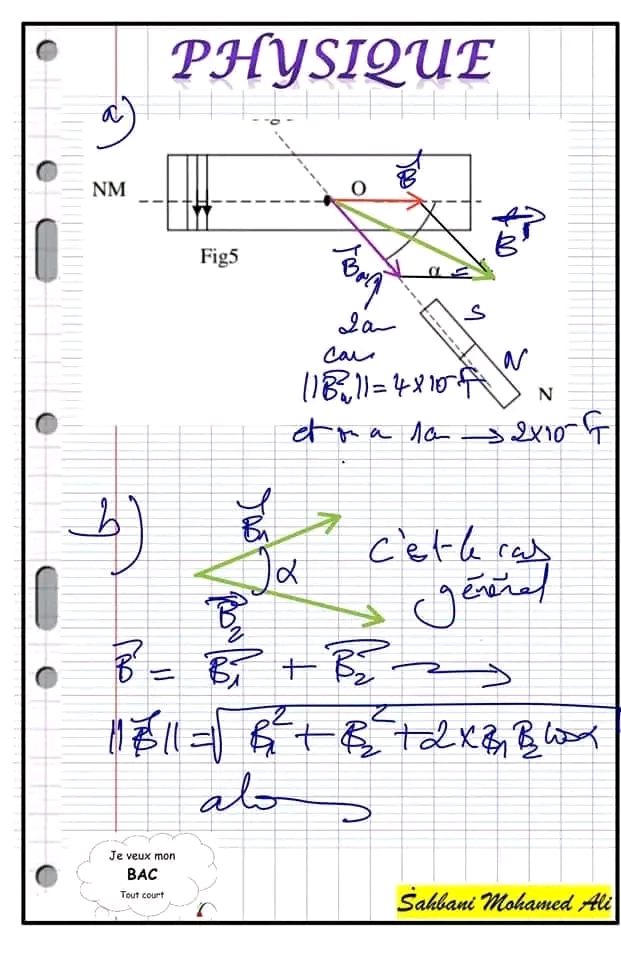 PHYSIQUE
a)
NM
O
B⃗
B⃗'
Fig5
B⃗a
α =
2a
S
car
N
||B⃗a|| = 4×10⁻⁵T
N
et on a 1a → 2×10⁻⁵T
b)
B⃗1
α
c'est le cas
général
B⃗2
B⃗ = B⃗1 + B⃗2
||B⃗|| = √B1² + B2² + 2×B1 B2 cosα
alors
Je veux mon
BAC
Tout court
Sahbani Mohamed Ali